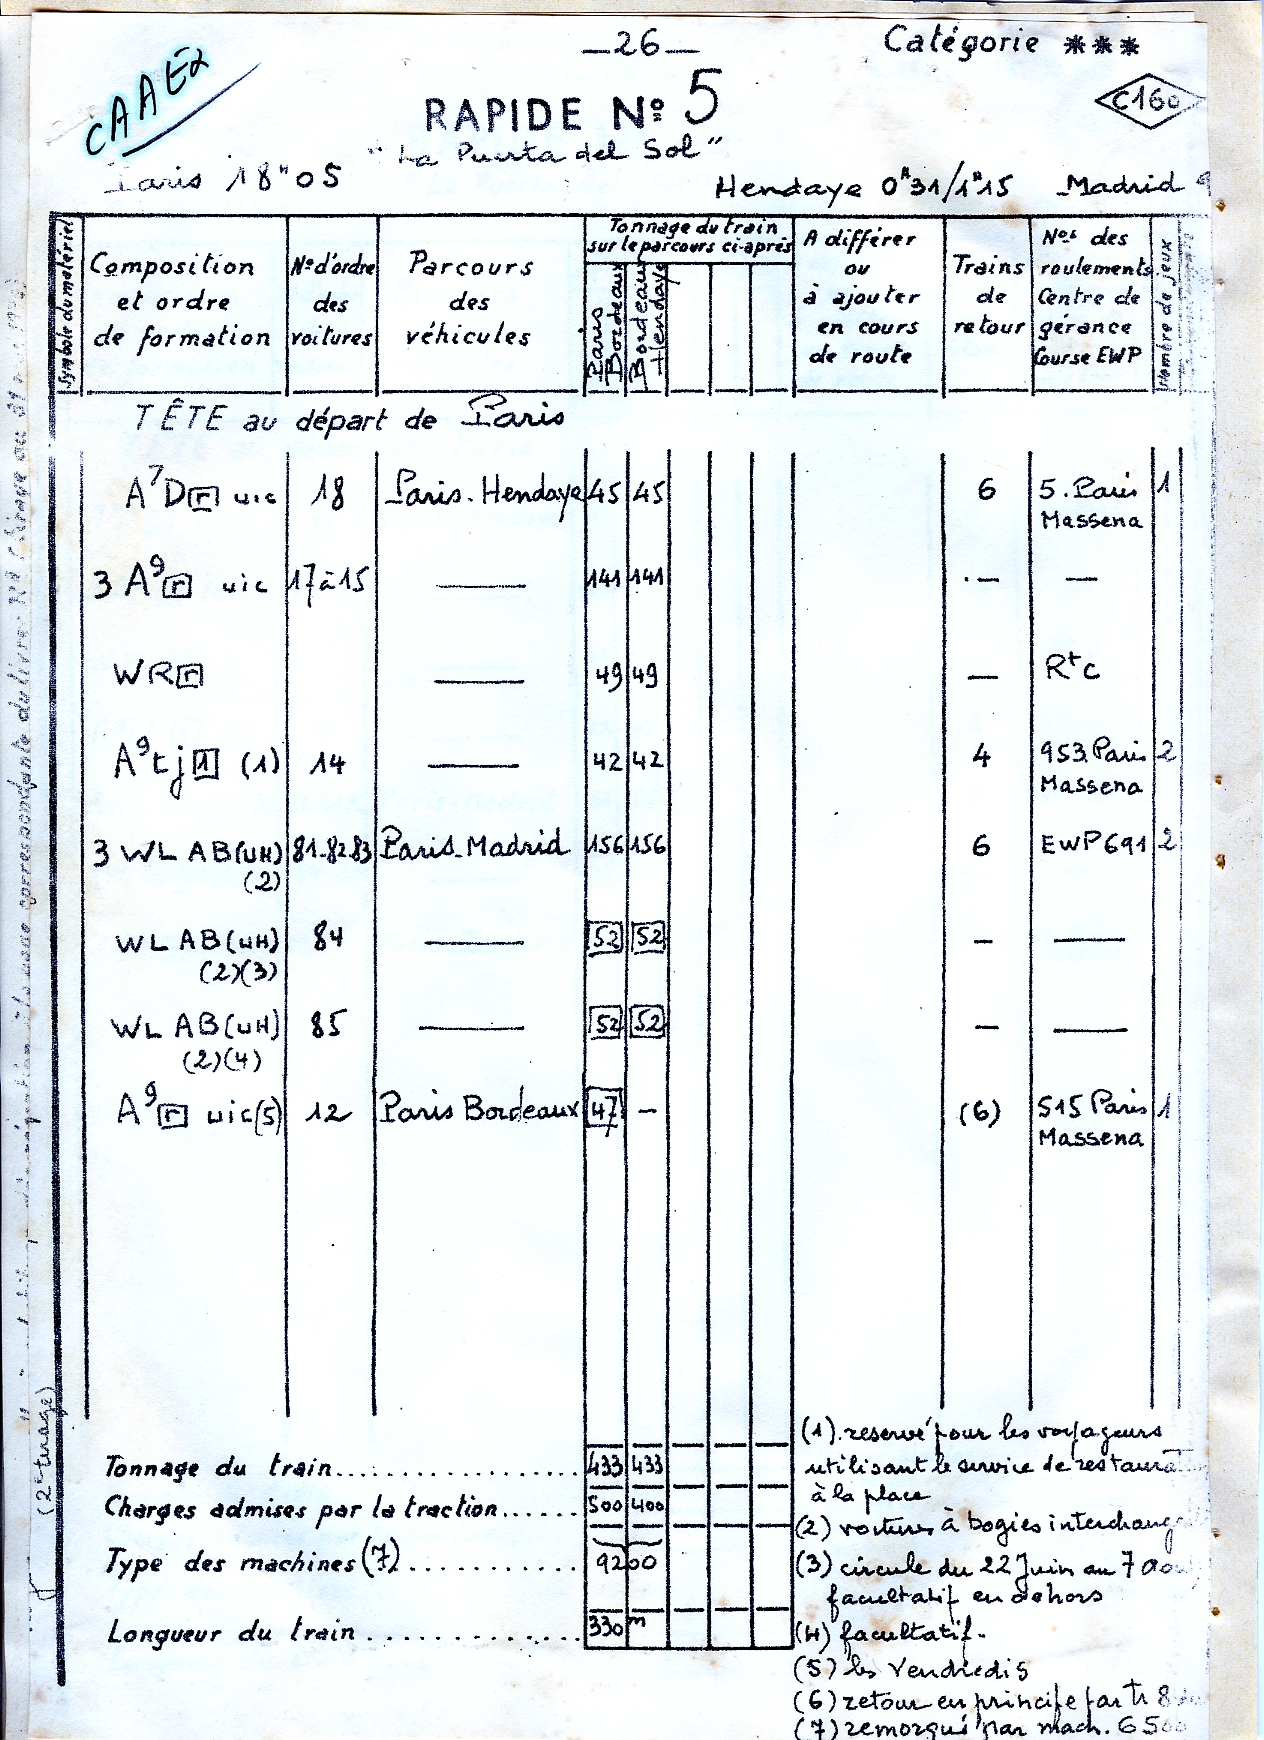 —26—
Catégorie ***
CAAEx
C160
RAPIDE Nº 5
"La Puerta del Sol"
Paris 18ʰ05
Hendaye 0ʰ31/1ʰ15 Madrid 9
Symbole du matériel
Composition et ordre de formation
Nº d'ordre des voitures
Parcours des véhicules
Tonnage du train sur le parcours ci-après
Paris Bordeaux
Bordeaux Hendaye
A différer ou à ajouter en cours de route
Trains de retour
Nos des roulements Centre de gérance Course EWP
Nombre de jeux
TÊTE au départ de Paris
A⁷D[r] uic 18 Paris-Hendaye 45 45 6 5. Paris Massena 1
3 A⁹[r] uic 17 à 15 — 141 141 — —
WR[r] — 49 49 — RᵗC
A⁹tj[1] (1) 14 — 42 42 4 953 Paris Massena 2
3 WL AB(UH) (2) 81-82-83 Paris-Madrid 156 156 6 EWP 691 2
WL AB(UH) (2)(3) 84 — [52] [52] — —
WL AB(UH) (2)(4) 85 — [52] [52] — —
A⁹[r] uic(5) 12 Paris Bordeaux [47] — (6) 515 Paris Massena 1
Tonnage du train 433 433
Charges admises par la traction 500 400
Type des machines (7) 9200
Longueur du train 330 m
(1) reservé pour les voyageurs
utilisant le service de restaurat
à la place
(2) voitures à bogies interchang
(3) circule du 22 Juin au 7 Aou
facultatif en dehors
(4) facultatif.
(5) les Vendredis
(6) retour en principe par Tr 8
(7) remorqué par mach. 6500
(2ᵉ tirage)